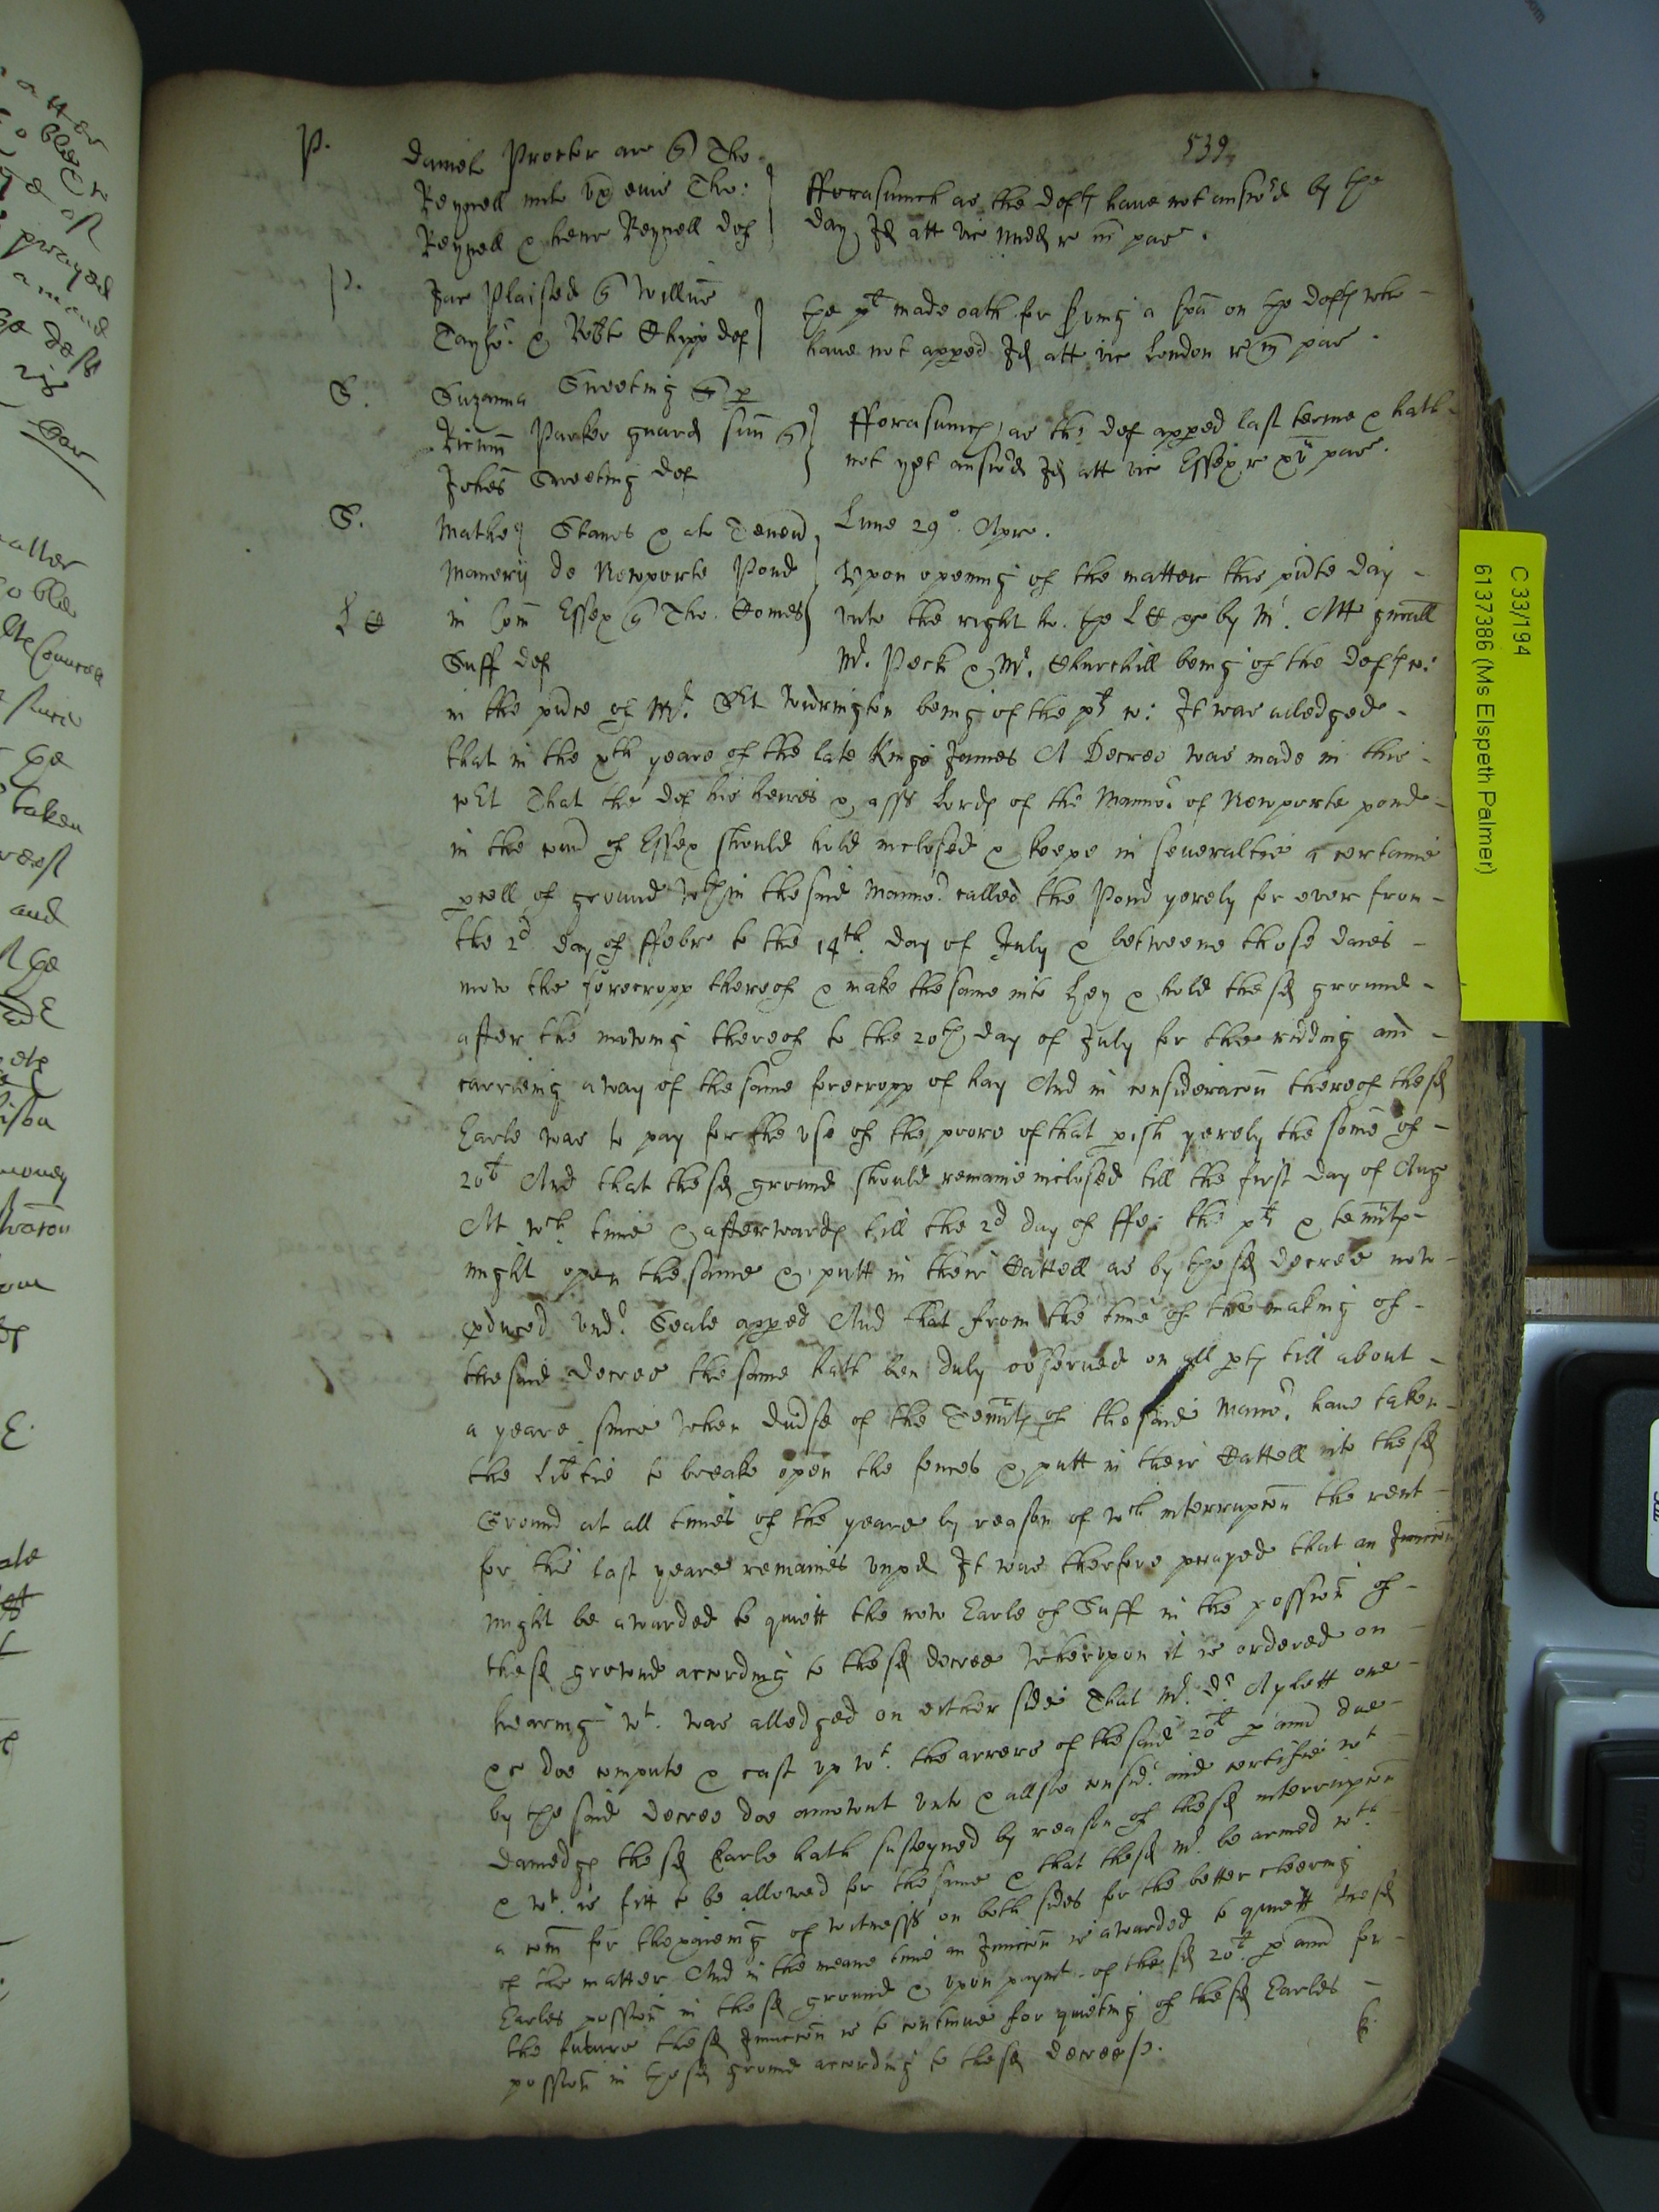 539
P. Daniel Procter ar q Tho:
Reynell mil ux eius Tho:
Reynell & henr Reynell def
fforasmuch as the deft have not answ'd by the
day Id att vic midd r m pas .
P. Jac Plaisted q Willm
Taylor & Robt Chipp def
the plt made oath for sving a spa on the deft who
have not apped Id att vic London r m pas .
S. Suzanna Sweeting p
Parker guard suu q
Johes Sweeting def
fforasmuch as the def apped last terme & hath
not yet answ'd Id att vic Essex r xv pas .
S. Mathe Stanes & al Tenen
Manerij de Newporte Pond
in Com Essex q Tho. Comes
Suff def
Lune 29o. Apr.
L C
Upon opening of the matter this pnte day
unto the right ho. the L C by Mr. Att gnrall
Mr. Peck & Mr. Churchill being of the deft c:
in the pnce of Mr. Widrington being of the plt c: It was alledged
that in the xth yeare of the late Kinge James A Decree was made in this
Cort That the def his heires & asss Lords of the Mannor of Newporte pond
in the coun of Essex should hold inclosed & keepe in severaltie a certaine
pcell of ground wthin the said Mannor called the Pond yerely for ever from
the 2d day of ffebr to the 14th day of July & betweene those daies
mow the forecropp thereof & make the same into hey & hold the sd ground
after the mowing thereof to the 20th day of July for the ridding and
carrieing away of the same forecropp of hay And in consideracon thereof the sd
Earle was to pay for the use of the poore of that pish yerely the some of
20l And that the sd ground should remaine inclosed till the first day of Aug
At wch time & afterwards till the 2d day of ffe: the plt & tennts
might open the same & putt in their Cattell as by the sd decree now
pduced undr Seale apped And that from the time of the making of
the said decree the same hath ben duly observed on all pts till about
a yeare since when divse of the Tennts of the said Mannor have taken
the libtie to breake open the fences & putt in their Cattell into the sd
Ground at all times of the yeare by reason of wch interrupcon the rent
for this last yeare remaines unpd It was therfore prayed that an Iniuncon
might be awarded to quiett the now Earle of Suff in the possion of
the sd grownd according to the sd decree Wherupon it is ordered on
hearing wt. was alledged on either side That Mr. Dr Aylett one
&c doe compute & cast up wt. the arrers of the said 20l p ann due
by the said decree doe amownt unto & allsoe consid. and certifie wt
damedgs the sd Earle hath susteyned by reason of the sd interrupcon
& wt. is fitt to be allowed for the same & that the sd Mr. be armed wth
a com for thexaieing of witnesss on both sides for the better cleering
of the matter And in the meane time an Iniuncon is awarded to quiett the sd
Earles possion in the sd ground & upon paymt of the sd 20l. p ann for
the future the sd Iniuncon is to continue for quieting of the sd Earles
possion in the sd ground according to the sd decree.
C 33/194
6137386 (Ms Elspeth Palmer)